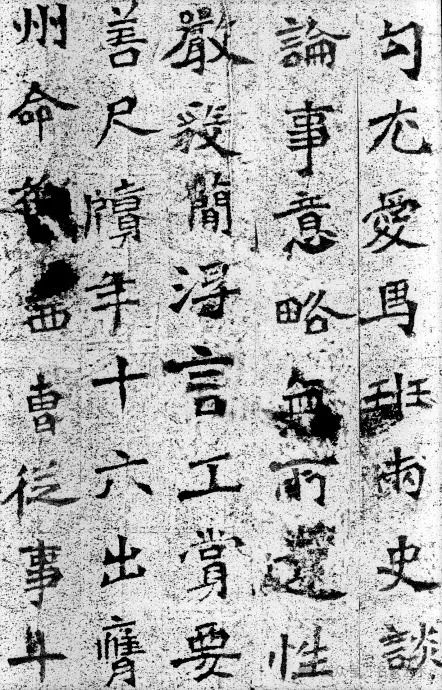 勾尤愛馬班兩史談
論事意略無所遺性
嚴毅簡浮言工賞要
善尺牘年十六出膺
州命西曹從事斗